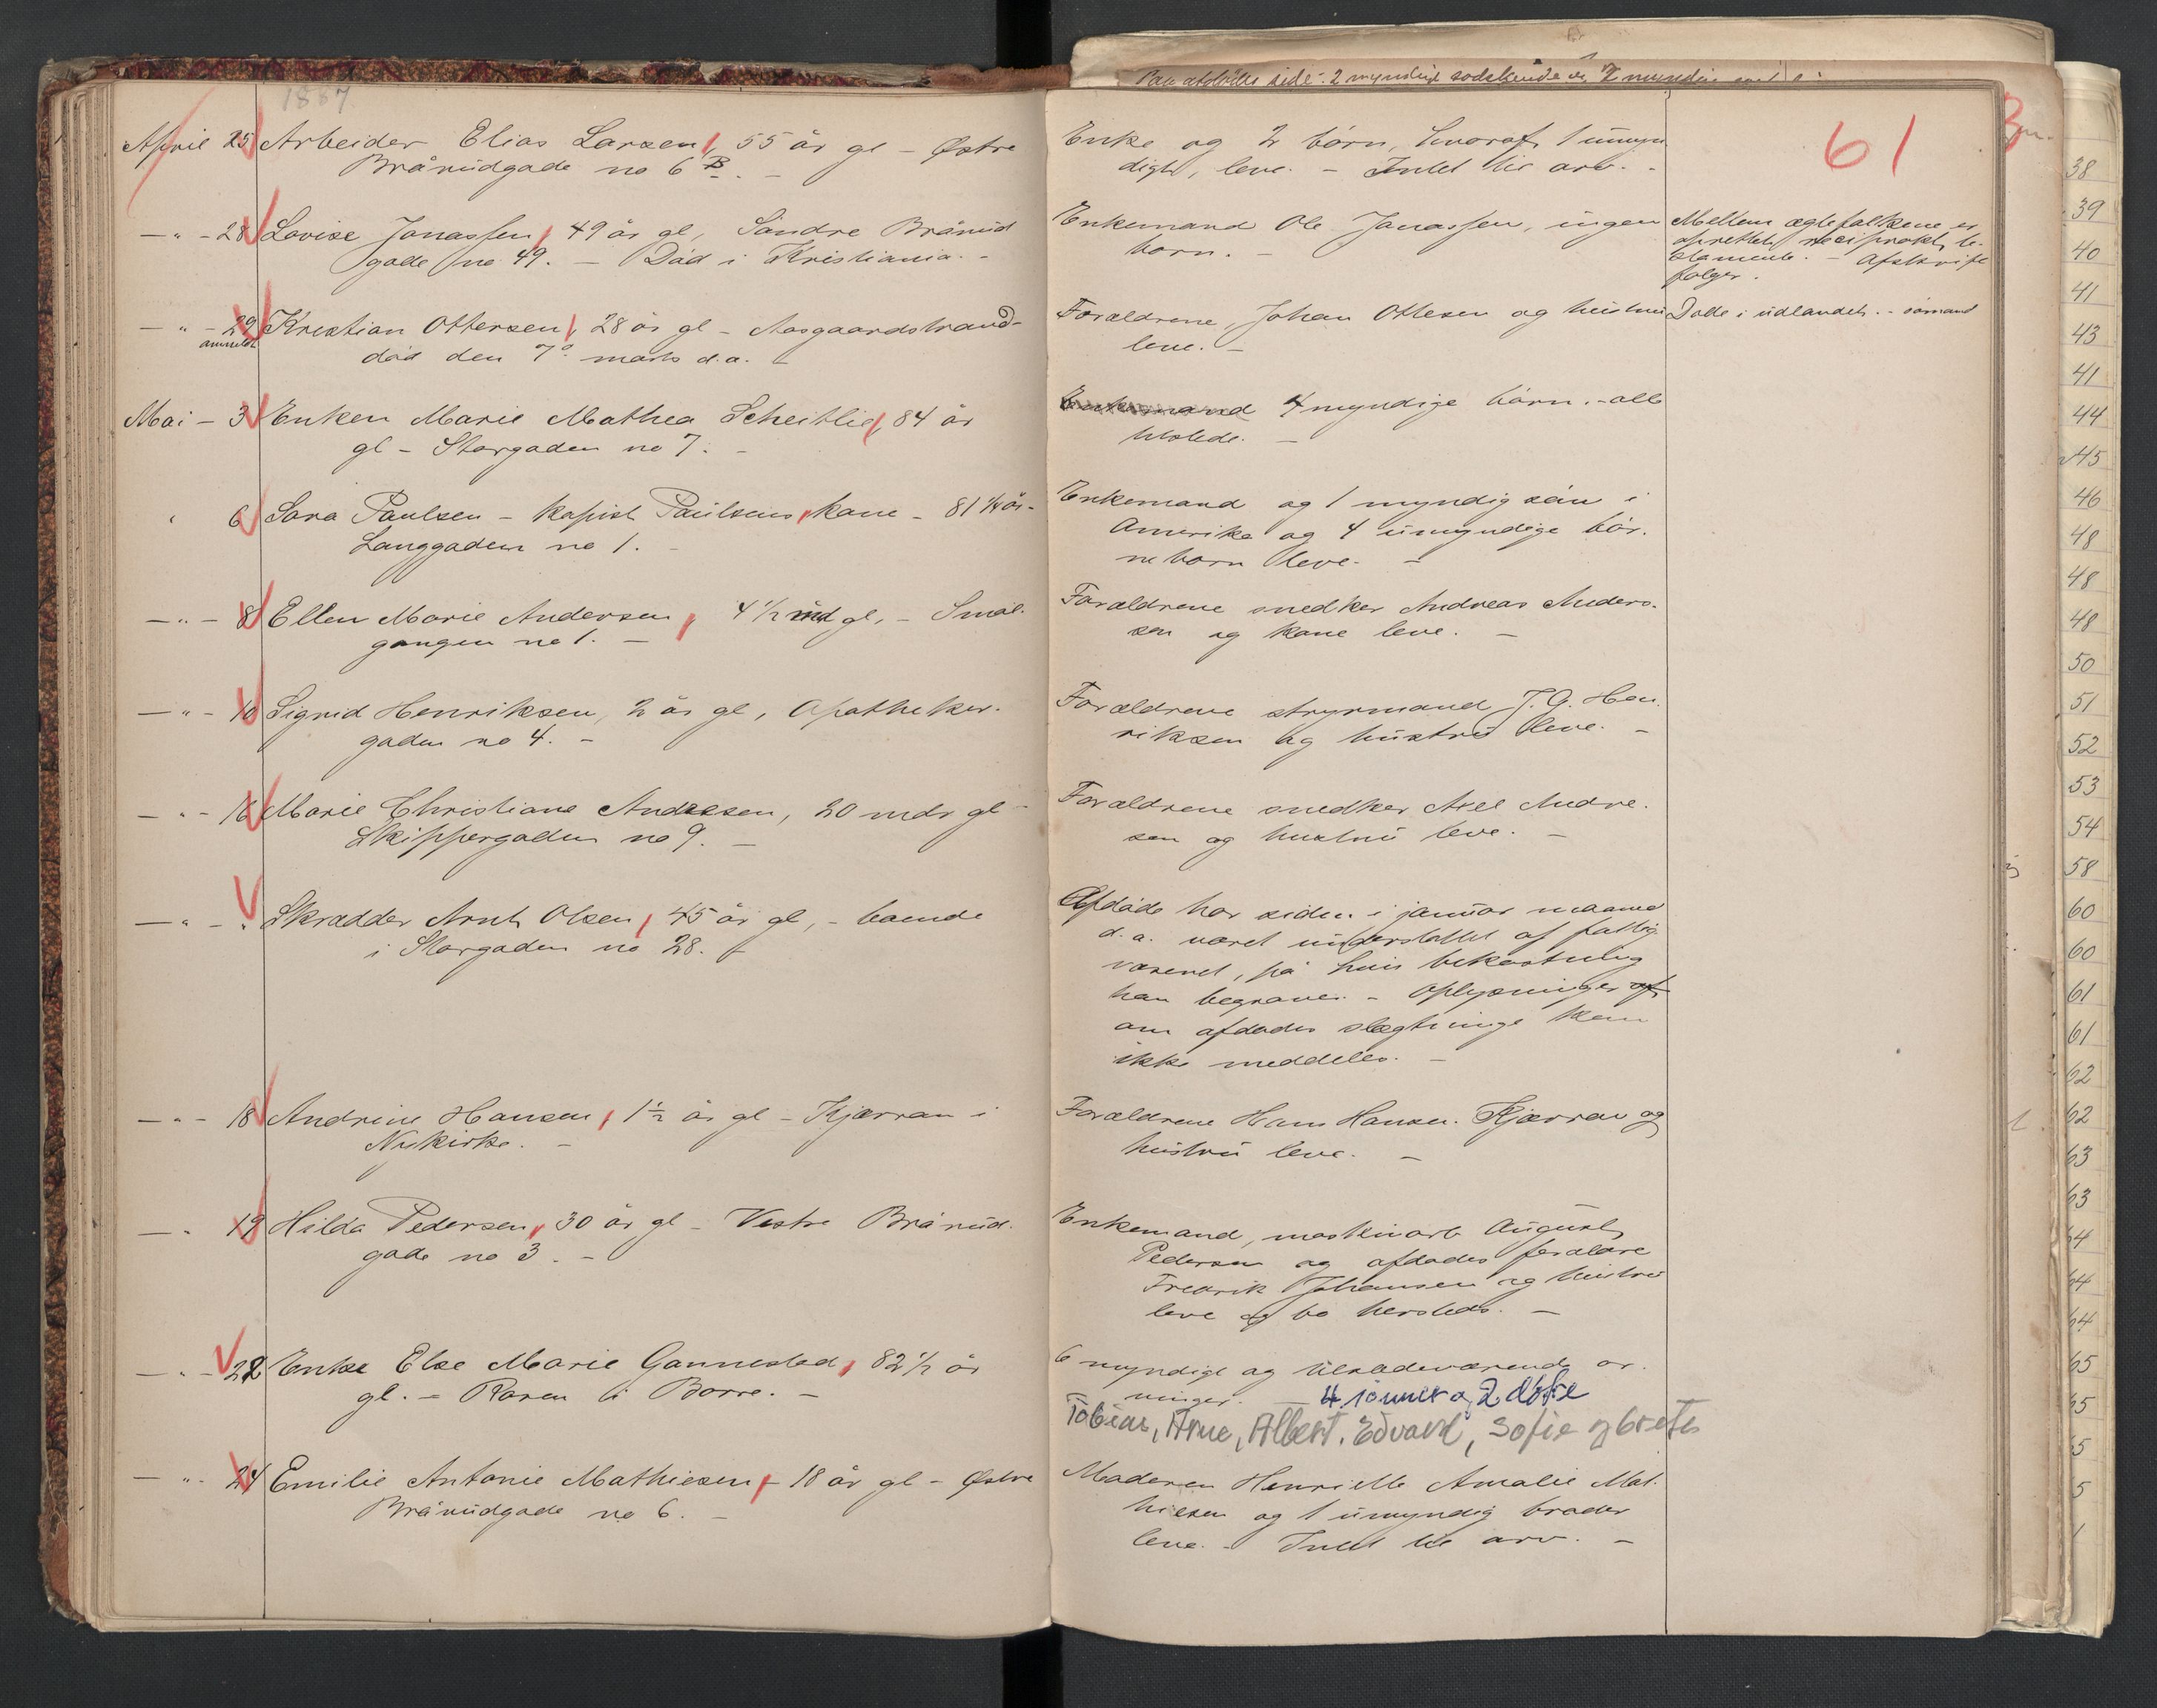 1887.
61
April 25 Arbeider Elias Larsen, 55 år gl - Østre
Brårudgade no 6 B. -
Enke og 2 børn, hvoraf 1 umyn
digt, leve. - Intet til arv. -
- " - 28 Lovise Jonassen, 49 år gl, Søndre Brårud
gade no 49. - Död i Kristiania. -
Enkemand Ole Jonassen, ingen
børn. -
Mellem ægtefolkene er
oprettet reciprokt te-
stamente. - Afskrift
følger.
- " - 29 Kristian Ottersen, 28 år gl - Aasgaardstrand -
anmeldt
död den 7de marts d.a. -
Forældrene, Johan Ottesen og hustru
leve. -
Døde i udlandet. - sømand
Mai - 3 Enken Marie Mathea Scheitlie, 84 år
gl - Storgaden no 7. -
Enkemand 4 myndige børn. - alle
tilstede. -
6 Sara Paulsen - kapist Paulsens kone - 81 1/4 år -
Langgaden no 1. -
Enkemand og 1 myndig sön i
Amerika og 4 umyndige bör-
nebørn leve. -
- " - 8 Ellen Marie Andersen, 4 1/2 md gl, - Smal-
gangen no 1. -
Forældrene snedker Andreas Anders-
sen og kone leve. -
- " - 10 Sigrid Henriksen, 2 år gl, Apotheker-
gaden no 4. -
Forældrene styrmand J. G. Hen-
riksen og hustru leve. -
- " - 16 Marie Christiane Andresen, 20 mdr gl -
Skippergaden no 9. -
Forældrene snedker Axel Andre-
sen og hustru leve. -
- " - " Skrædder Arnt Olsen, 45 år gl, - boende
i Storgaden no 28. -
Afdöde har siden i januar maaned
d.a. været understøttet af fattig-
væsenet, på hvis bekostning
han begraves. - Oplysninger af
om afdödes slægtninge kan
ikke meddeles. -
- " - 18 Andrine Hansen, 1 1/2 år gl - Kjærran i
Nykirke. -
Forældrene Hans Hansen Kjærran og
hustru leve. -
- " 19 Hilda Pedersen, 30 år gl - Vestre Brårud-
gade no 3. -
Enkemand, maskinarb August
Pedersen og afdødes forældre
Fredrik Johansen og hustru
leve og bo hersteds. -
- " - 22 Enke Else Marie Gannestad, 82 1/2 år
gl. - Raven i Borre. -
6 myndige og tilstedeværende ar-
vinger. - 4 sønner og 2 døtre
Tobias, Arne, Albert, Edvard, Sofie og Grete
- " - 24 Emilie Antonie Mathiesen, - 18 år gl - Østre
Brårudgade no 6. -
Moderen Henriette Amalie Mat-
hiesen og 1 umyndig broder
leve. - Intet til arv. -
38
39
40
41
43
41
44
45
46
48
48
48
50
51
52
53
54
58
60
60
61
61
62
62
63
63
64
64
64
65
65